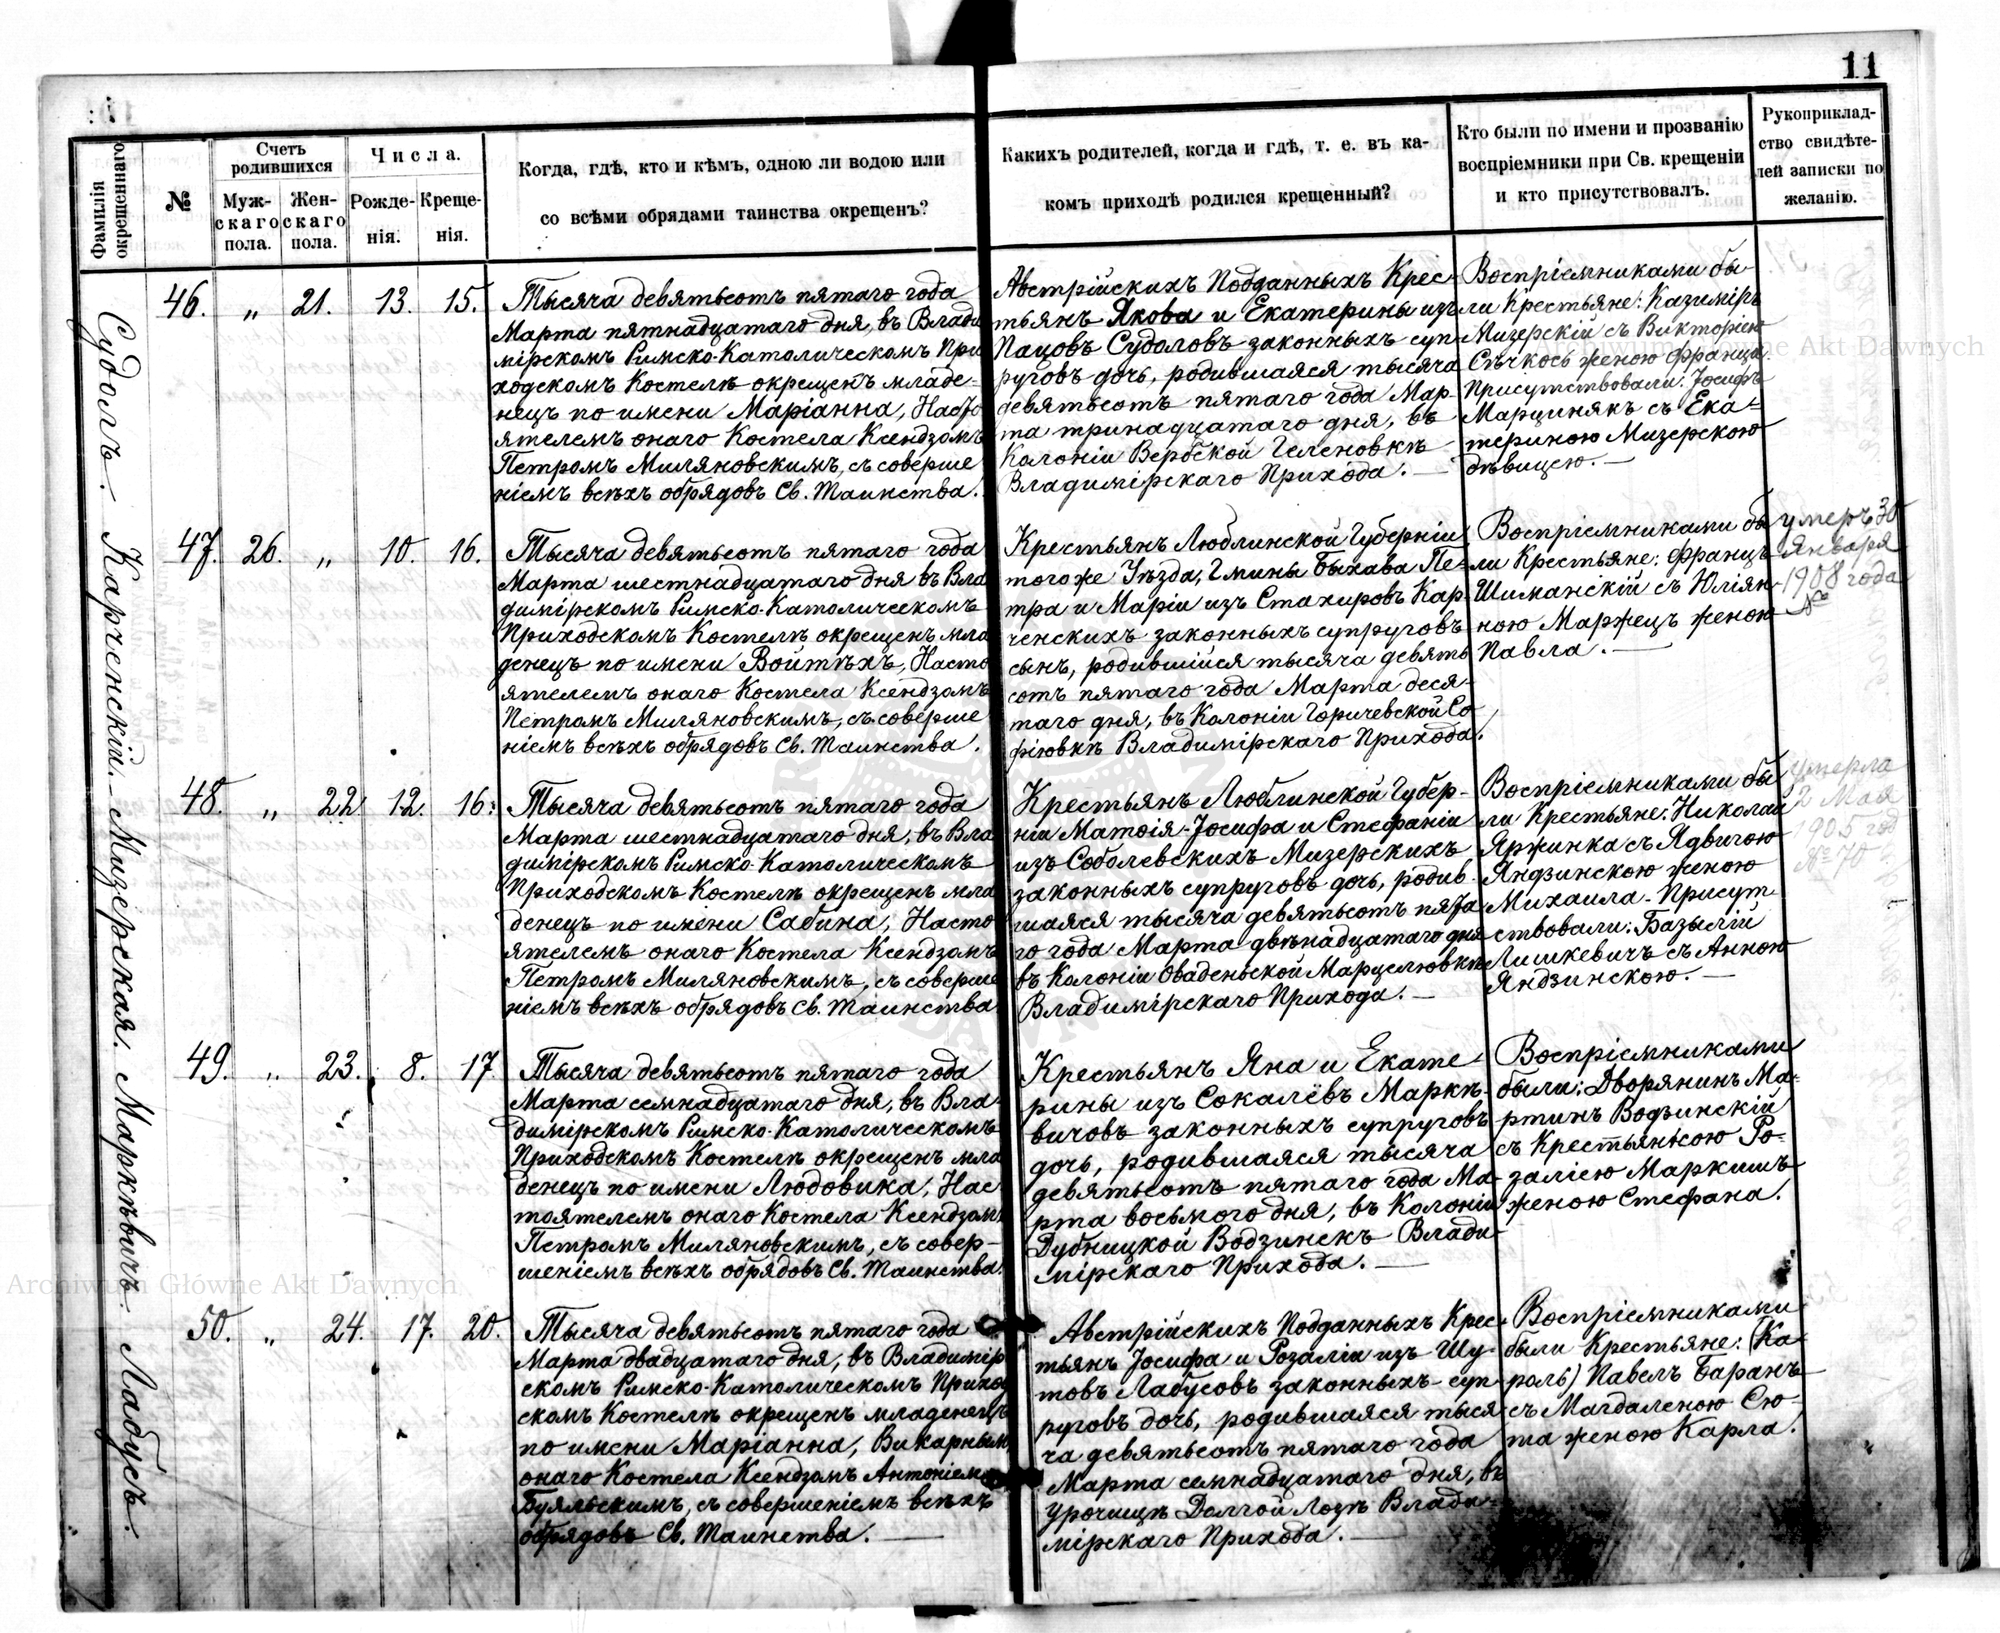 11
Фамилія окрещеннаго.
№
Счетъ родившихся
Муж-
скаго
пола.
Жен-
скаго
пола.
Числа.
Рожде-
нія.
Креще-
нія.
Когда, гдѣ, кто и кѣмъ, одною ли водою или
со всѣми обрядами таинства окрещенъ?
Какихъ родителей, когда и гдѣ, т. е. въ ка-
комъ приходѣ родился крещенный?
Кто были по имени и прозванію
воспріемники при Св. крещеніи
и кто присутствовалъ.
Рукоприклад-
ство свидѣте-
лей записки по
желанію.
Судолъ.
46. „ 21. 13. 15.
Тысяча девятьсотъ пятаго года
Марта пятнадцатаго дня, въ Влади
мірскомъ Римско-Католическомъ При
ходскомъ Костелѣ окрещенъ младе-
нецъ по имени Маріанна, Насто
ятелемъ онаго Костела Ксендзомъ
Петромъ Миляновскимъ, съ соверше
ніемъ всѣхъ обрядовъ Св. Таинства.
Австрійскихъ Подданныхъ Крес-
тьянъ Якова и Екатерины изъ
Пацовъ Судоловъ законныхъ суп-
руговъ дочь, родившаяся тысяча
девятьсотъ пятаго года Мар-
та тринадцатаго дня, въ
Колоніи Вербской Геленовкѣ
Владимірскаго Прихода.
Воспріемниками бы-
ли Крестьяне: Казиміръ
Мизерскій съ Викторіею
Сѣчкось женою Франца.
Присутствовали: Іосифъ
Марцинякъ съ Ека-
териною Мизерскою
дѣвицею.
Карченскій.
47. 26. „ 10. 16.
Тысяча девятьсотъ пятаго года
Марта шестнадцатаго дня въ Вла
димірскомъ Римско-Католическомъ
Приходскомъ Костелѣ окрещенъ мла
денецъ по имени Войтѣхъ, Насто
ятелемъ онаго Костела Ксендзомъ
Петромъ Миляновскимъ, съ соверше
ніемъ всѣхъ обрядовъ Св. Таинства.
Крестьянъ Люблинской Губерніи
тогоже Уѣзда, Гмины Быхава Пе-
тра и Маріи изъ Стахировъ Кар-
ченскихъ законныхъ супруговъ
сынъ, родившійся тысяча девять
сотъ пятаго года Марта деся-
таго дня, въ Колоніи Горичевской Со
фіювкѣ Владимірскаго Прихода.
Воспріемниками бы
ли Крестьяне: Францъ
Шиманскій съ Юліян-
ною Маржецъ женою
Павла.
умеръ 30
Января
1908 года
№
Мизерская.
48. „ 22 12. 16.
Тысяча девятьсотъ пятаго года
Марта шестнадцатаго дня, въ Вла
димірскомъ Римско-Католическомъ
Приходскомъ Костелѣ окрещенъ мла
денецъ по имени Сабина, Насто
ятелемъ онаго Костела Ксендзомъ
Петромъ Миляновскимъ, съ соверше
ніемъ всѣхъ обрядовъ Св. Таинства.
Крестьянъ Люблинской Губер-
ніи Матѳія-Іосифа и Стефаніи
изъ Соболевскихъ Мизерскихъ
законныхъ супруговъ дочь, родив-
шаяся тысяча девятьсотъ пята
го года Марта двѣнадцатаго дня
въ Колоніи Оваденьской Марцелювкѣ
Владимірскаго Прихода.
Воспріемниками бы
ли Крестьяне: Николай
Яржинка съ Ядвигою
Яндзинскою женою
Михаила. Присут
ствовали: Базылій
Лишкевичъ съ Анною
Яндзинскою.
Умерла
2 Мая
1905 год
№ 70
Маркѣвичъ.
49. „ 23. 8. 17
Тысяча девятьсотъ пятаго года
Марта семнадцатаго дня, въ Вла-
димірскомъ Римско-Католическомъ
Приходскомъ Костелѣ окрещенъ мла
денецъ по имени Людовика, Нас
тоятелемъ онаго Костела Ксендзомъ
Петромъ Миляновскимъ, съ совер-
шеніемъ всѣхъ обрядовъ Св. Таинства.
Крестьянъ Яна и Екате-
рины изъ Сокалёвъ Маркѣ-
вичовъ законныхъ супруговъ
дочь, родившаяся тысяча
девятьсотъ пятаго года Ма-
рта восьмого дня, въ Колоніи
Дубницкой Водзинекъ Влади-
мірскаго Прихода.
Воспріемниками
были: Дворянинъ Ма-
ртинъ Водзинскій
съ Крестьянкою Ро-
заліею Маркишъ
женою Стефана.
Лабусъ.
50. „ 24. 17. 20.
Тысяча девятьсотъ пятаго года
Марта двадцатаго дня, въ Владимір
скомъ Римско-Католическомъ Приход
скомъ Костелѣ окрещенъ младенецъ
по имени Маріанна, Викарнымъ
онаго Костела Ксендзомъ Антоніемъ
Буяльскимъ, съ совершеніемъ всѣхъ
обрядовъ Св. Таинства.
Австрійскихъ Подданныхъ Крес-
тьянъ Іосифа и Розаліи изъ Шу-
товъ Лабусовъ законныхъ суп-
руговъ дочь, родившаяся тыся-
ча девятьсотъ пятаго года
Марта семнадцатаго дня, въ
Урочищѣ Долгой Лозѣ Влади-
мірскаго Прихода.
Воспріемниками
были Крестьяне: (Ка-
роль) Павелъ Баранъ
съ Магдаленою Сю-
та женою Карла.
Archiwum Główne Akt Dawnych
Archiwum Główne Akt Dawnych